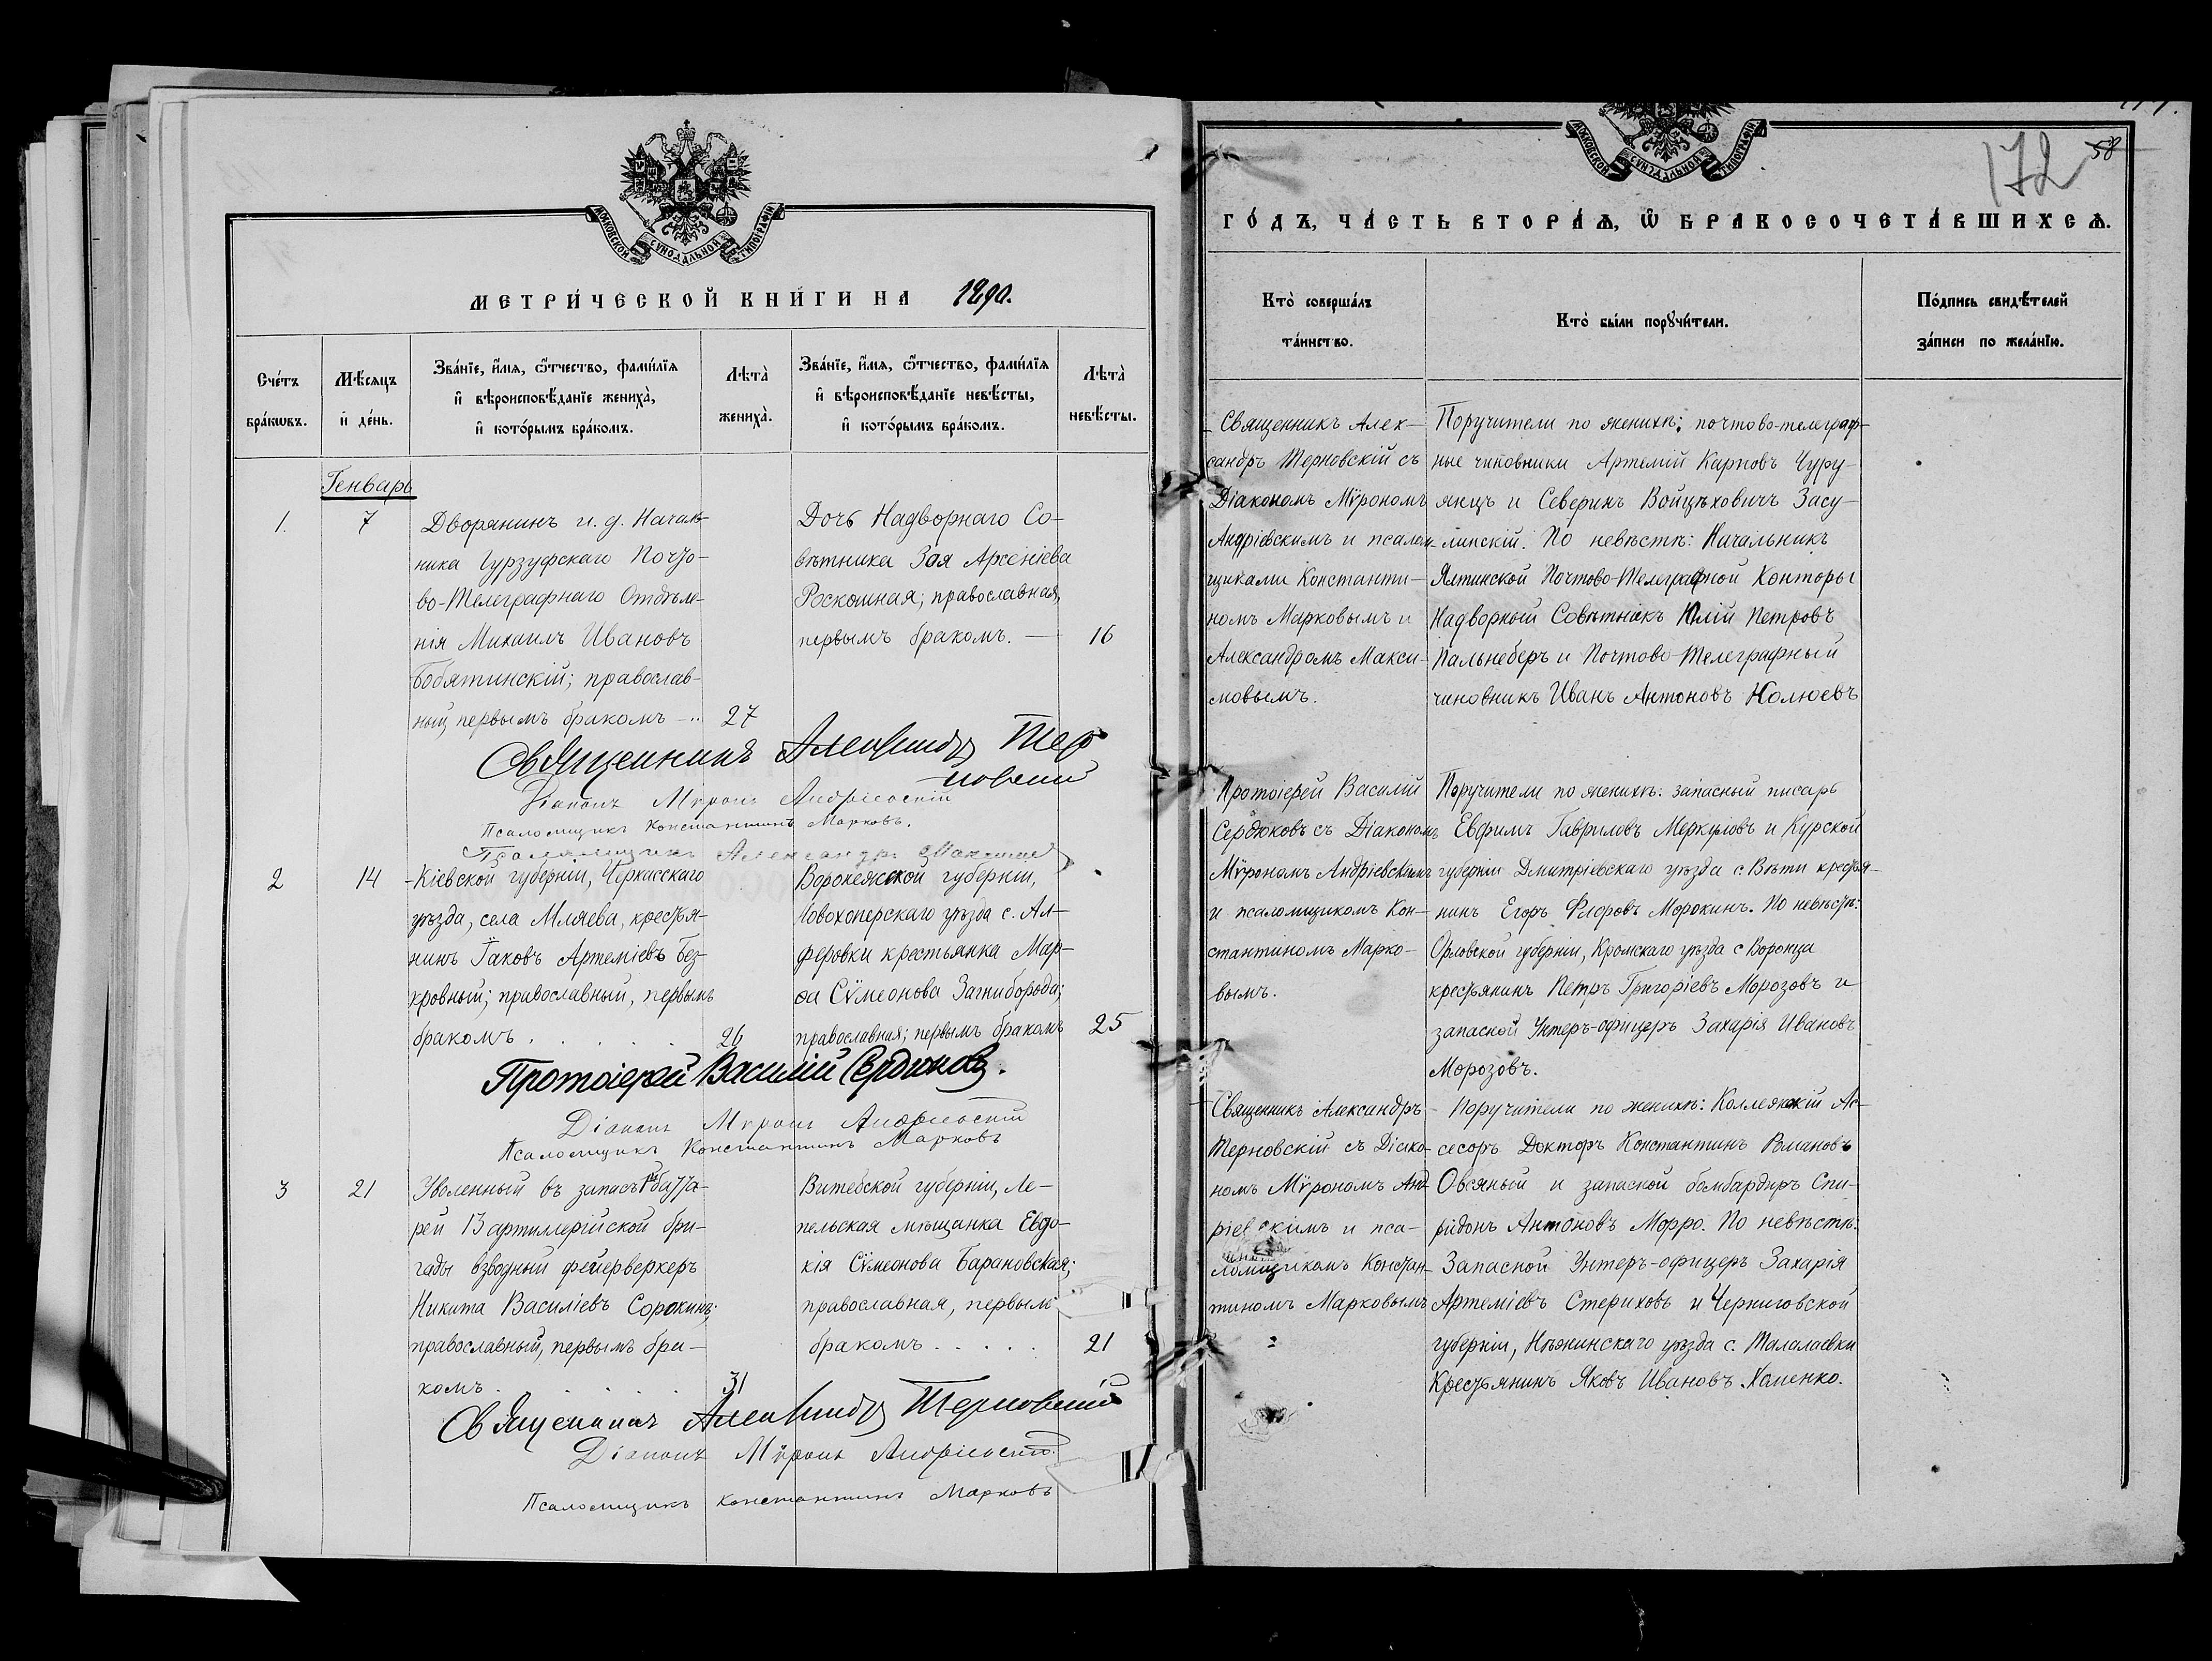 МОСКОВСКОЙ СѴНОДАЛЬНОЙ ТИПОГРАФІИ
МЕТРИ́ЧЕСКОЙ КНИ́ГИ НА 1890.
Сче́тъ бра́кωвъ.
Мѣ́сяцъ и҆ де́нь.
Зва́нїе, и҆́мѧ, ѻ҆́тчество, фами́лїѧ
и҆ вѣроисповѣ́данїе жениха̀,
и҆ кото́рымъ бра́комъ.
Лѣта̀ жениха̀.
Зва́нїе, и҆́мѧ, ѻ҆́тчество, фами́лїѧ
и҆ вѣроисповѣ́данїе невѣ́сты,
и҆ кото́рымъ бра́комъ.
Лѣта̀ невѣ́сты.
Генварь
1.
7
Дворянинъ и. д. Началь-
ника Гурзуфскаго Почто-
во-Телеграфнаго Отдѣле-
нія Михаилъ Ивановъ
Бобятинскій; православ-
ный, первымъ бракомъ
27
Дочь Надворнаго Со-
вѣтника Зоя Арсеніева
Роскошная; православная,
первымъ бракомъ. —
16
Священникъ Александръ Тер
новскій
Діаконъ Мѵронъ Андріевскій
Псаломщикъ Константинъ Марковъ.
Псаломщикъ Александръ Максимовъ
2
14
Кіевской губерніи, Черкасскаго
уѣзда, села Мляева, крестья-
нинъ Іаковъ Артеміевъ Без-
кровный; православный, первымъ
бракомъ . . . . .
26
Воронежской губерніи,
Новохоперскаго уѣзда с. Ал-
феровки крестьянка Мар-
ѳа Сѵмеонова Загниборода;
православная; первымъ бракомъ
25
Протоіерей Василій Сердюковъ.
Діаконъ Мѵронъ Андріевскій
Псаломщикъ Константинъ Марковъ
3
21
Уволенный въ запасъ 1й батта-
рей 13 артиллерійской бри-
гады взводный фейерверкеръ
Никита Василіевъ Сорокинъ;
православный, первымъ бра-
комъ . . . . .
31
Витебской губерніи, Ле-
пельская мѣщанка Евдо-
кія Сѵмеонова Барановская;
православная, первымъ
бракомъ . . . . .
21
Священникъ Александръ Терновскій
Діаконъ Мѵронъ Андріевскій.
Псаломщикъ Константинъ Марковъ
МОСКОВСКОЙ СѴНОДАЛЬНОЙ ТИПОГРАФІИ
172
58
ГО́ДЪ, ЧА́СТЬ ВТОРА́Ѧ, Ѽ БРАКОСОЧЕТА́ВШИХСѦ.
Кто̀ соверша́лъ
та́инство.
Кто̀ бы́ли порꙋчи́тели.
По́дпись свидѣ́телей
за́писи по жела́нїю.
Священникъ Алек-
сандръ Терновскій съ
Діакономъ Мѵрономъ
Андріевскимъ и псалом-
щиками Константи-
номъ Марковымъ и
Александромъ Макси-
мовымъ.
Поручители по женихѣ: почтово-телеграф-
ные чиновники Артемій Карповъ Чуру-
янцъ и Северинъ Войцѣховичъ Засу-
липскій. По невѣстѣ: Начальникъ
Ялтинской Почтово-Телеграфной Конторы
Надворной Совѣтникъ Юлій Петровъ
Пальнеберъ и Почтово-Телеграфный
чиновникъ Иванъ Антоновъ Колюевъ
Протоіерей Василій
Сердюковъ съ Діакономъ
Мѵрономъ Андріевскимъ
и псаломщикомъ Кон-
стантиномъ Марко-
вымъ.
Поручители по женихѣ: запасный писарь
Евфимъ Гавриловъ Меркуловъ и Курской
губерніи Дмитріевскаго уѣзда с. Вѣти крестья-
нинъ Егоръ Флоровъ Морокинъ. По невѣстѣ:
Орловской губерніи, Кромскаго уѣзда с Воронца
крестьянинъ Петръ Григоріевъ Морозовъ и
запасной Унтеръ-офицеръ Захарія Ивановъ
Морозовъ.
Священникъ Александръ
Терновскій съ Діако-
номъ Мѵрономъ Анд-
ріевскимъ и пса-
ломщикомъ Констан-
тиномъ Марковымъ
Поручители по женихѣ: Коллежскій Ас-
сесоръ Докторъ Константинъ Романовъ
Овсяный и запаской бомбардиръ Спи-
ридонъ Антоновъ Морро. По невѣстѣ:
Запасной Унтеръ-офицеръ Захарія
Артеміевъ Стериховъ и Черниговской
губерніи, Нѣжинскаго уѣзда с. Талалаевки
Крестьянинъ Яковъ Ивановъ Хапенко.